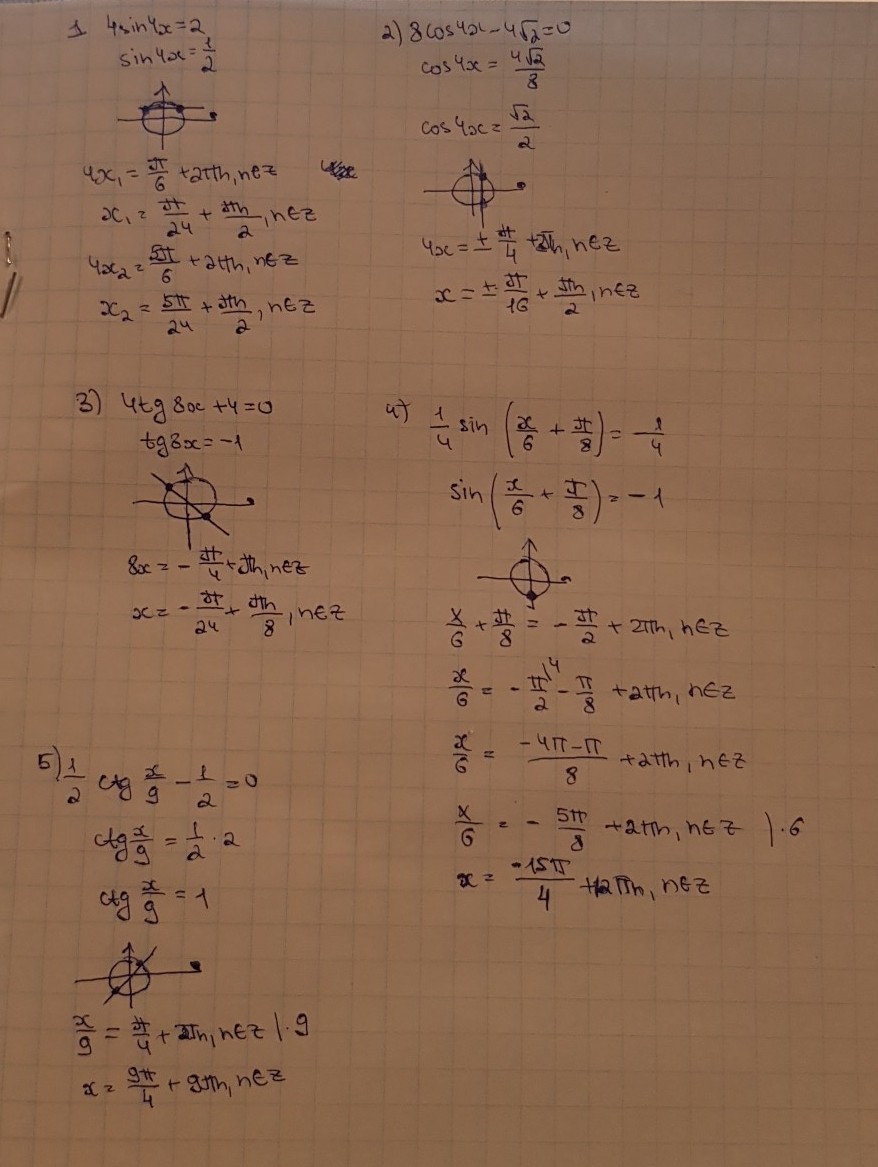 1 4sin4x=2
sin4x=1/2
4x₁=π/6+2πn,n∈z
x₁=π/24+πn/2,n∈z
4x₂=5π/6+2πn,n∈z
x₂=5π/24+πn/2,n∈z
2) 8cos4x-4√2=0
cos4x=4√2/8
cos4x=√2/2
4x=±π/4+2πn,n∈z
x=±π/16+πn/2,n∈z
3) 4tg8x+4=0
tg8x=-1
8x=-π/4+πn,n∈z
x=-π/24+πn/8,n∈z
4) 1/4 sin(x/6+π/8)=-1/4
sin(x/6+π/8)=-1
x/6+π/8=-π/2+2πn,n∈z
x/6=-π/2\4-π/8+2πn,n∈z
x/6=(-4π-π)/8+2πn,n∈z
x/6=-5π/8+2πn,n∈z |·6
x=-15π/4+12πn,n∈z
5) 1/2 ctg x/9-1/2=0
ctg x/9=1/2·2
ctg x/9=1
x/9=π/4+πn,n∈z |·9
x=9π/4+9πn,n∈z